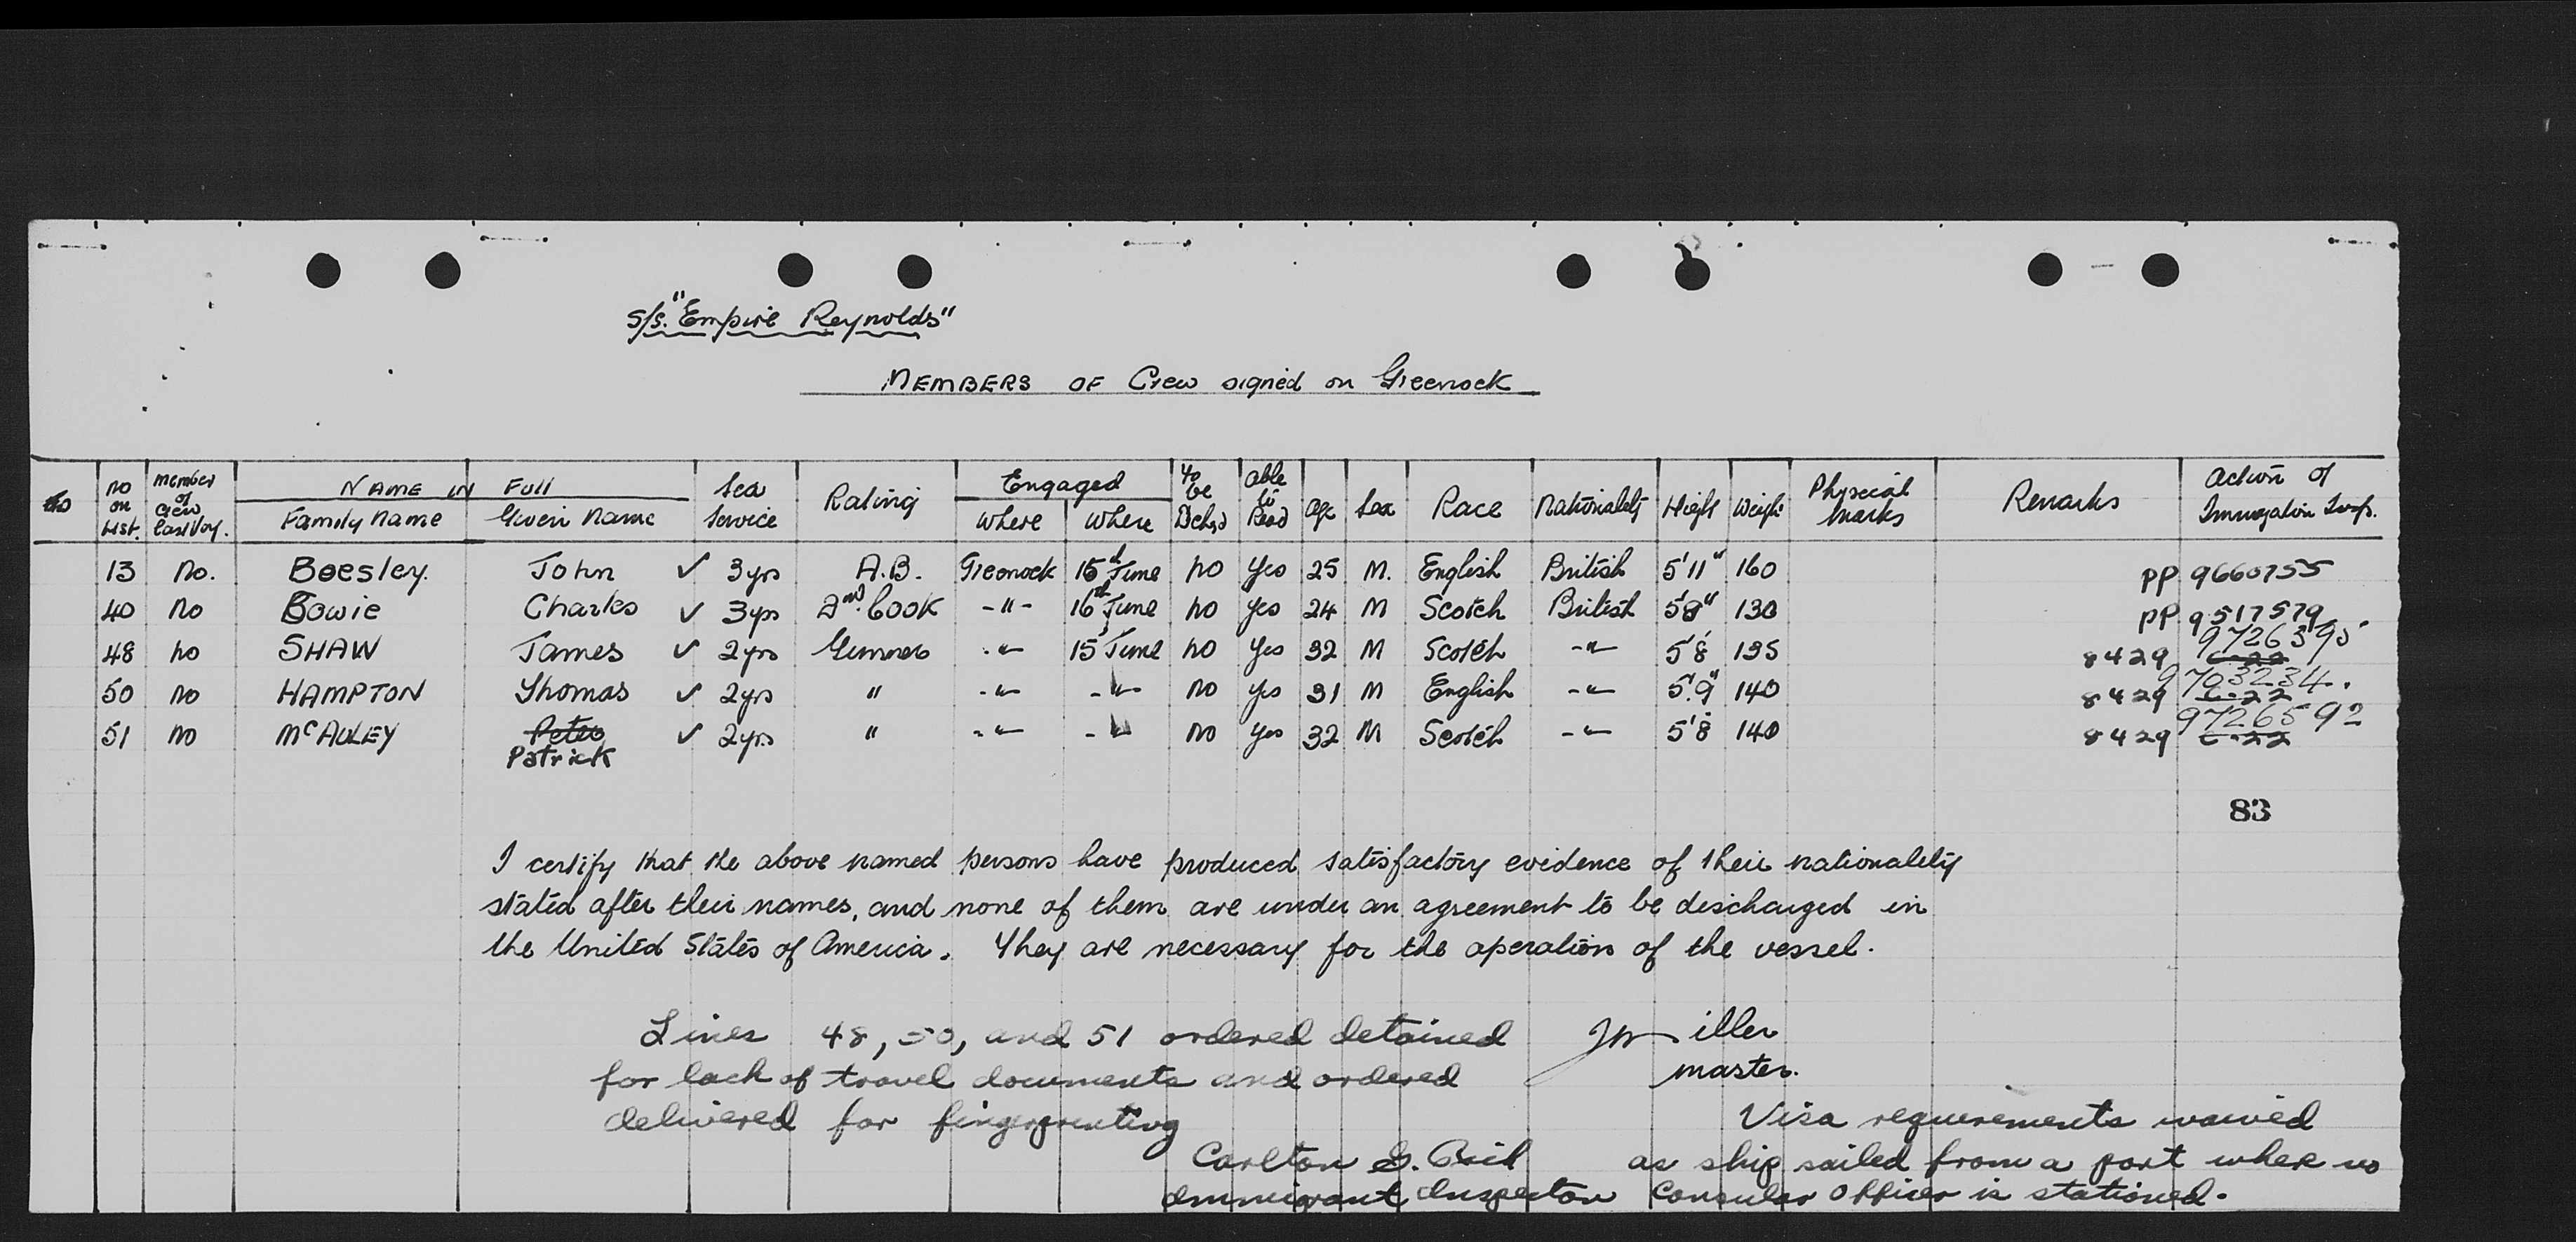 s/s. "Empire Reynolds"
MEMBERS OF Crew signed on Greenock
No | no on List. | member of crew last Voy. | NAME IN FULL | Sea Service | Rating | Engaged | to be Dchgd | able to Read | age | Sex | Race | Nationality | High | Weigh | Physical marks | Remarks | Action of Immigration Insp.
Family Name | Given Name | where | where
13 no. Beesley. John ✓ 3yrs A.B. Greenock 15th June no yes 25 M. English British 5'11" 160 PP 9660755
40 no Bowie Charles ✓ 3yrs 2nd. Cook -"- 16th June no yes 24 M Scotch British 5'8" 130 PP 9517579
48 no SHAW James ✓ 2yrs Gunner -"- 15 June no yes 32 M Scotch -"- 5'8 135 8429 C-22 9726395
50 no HAMPTON Thomas ✓ 2yrs " -"- -"- no yes 31 M English -"- 5'.9" 140 8429 C-22 9703234.
51 no McAULEY Peter ✓ 2yrs " -"- -"- no yes 32 M Scotch -"- 5'8 140 8429 C-22 9726592
Patrick
83
I certify that the above named persons have produced satisfactory evidence of their nationality
stated after their names, and none of them are under an agreement to be discharged in
the United States of America. They are necessary for the operation of the vessel.
Lines 48, 50, and 51 ordered detained
for lack of travel documents and ordered
delivered for fingerprinting
Miller
master.
Carlton G.
Immigrant Inspector
Visa requirements waived
as ship sailed from a port where no
Consular Officer is stationed.